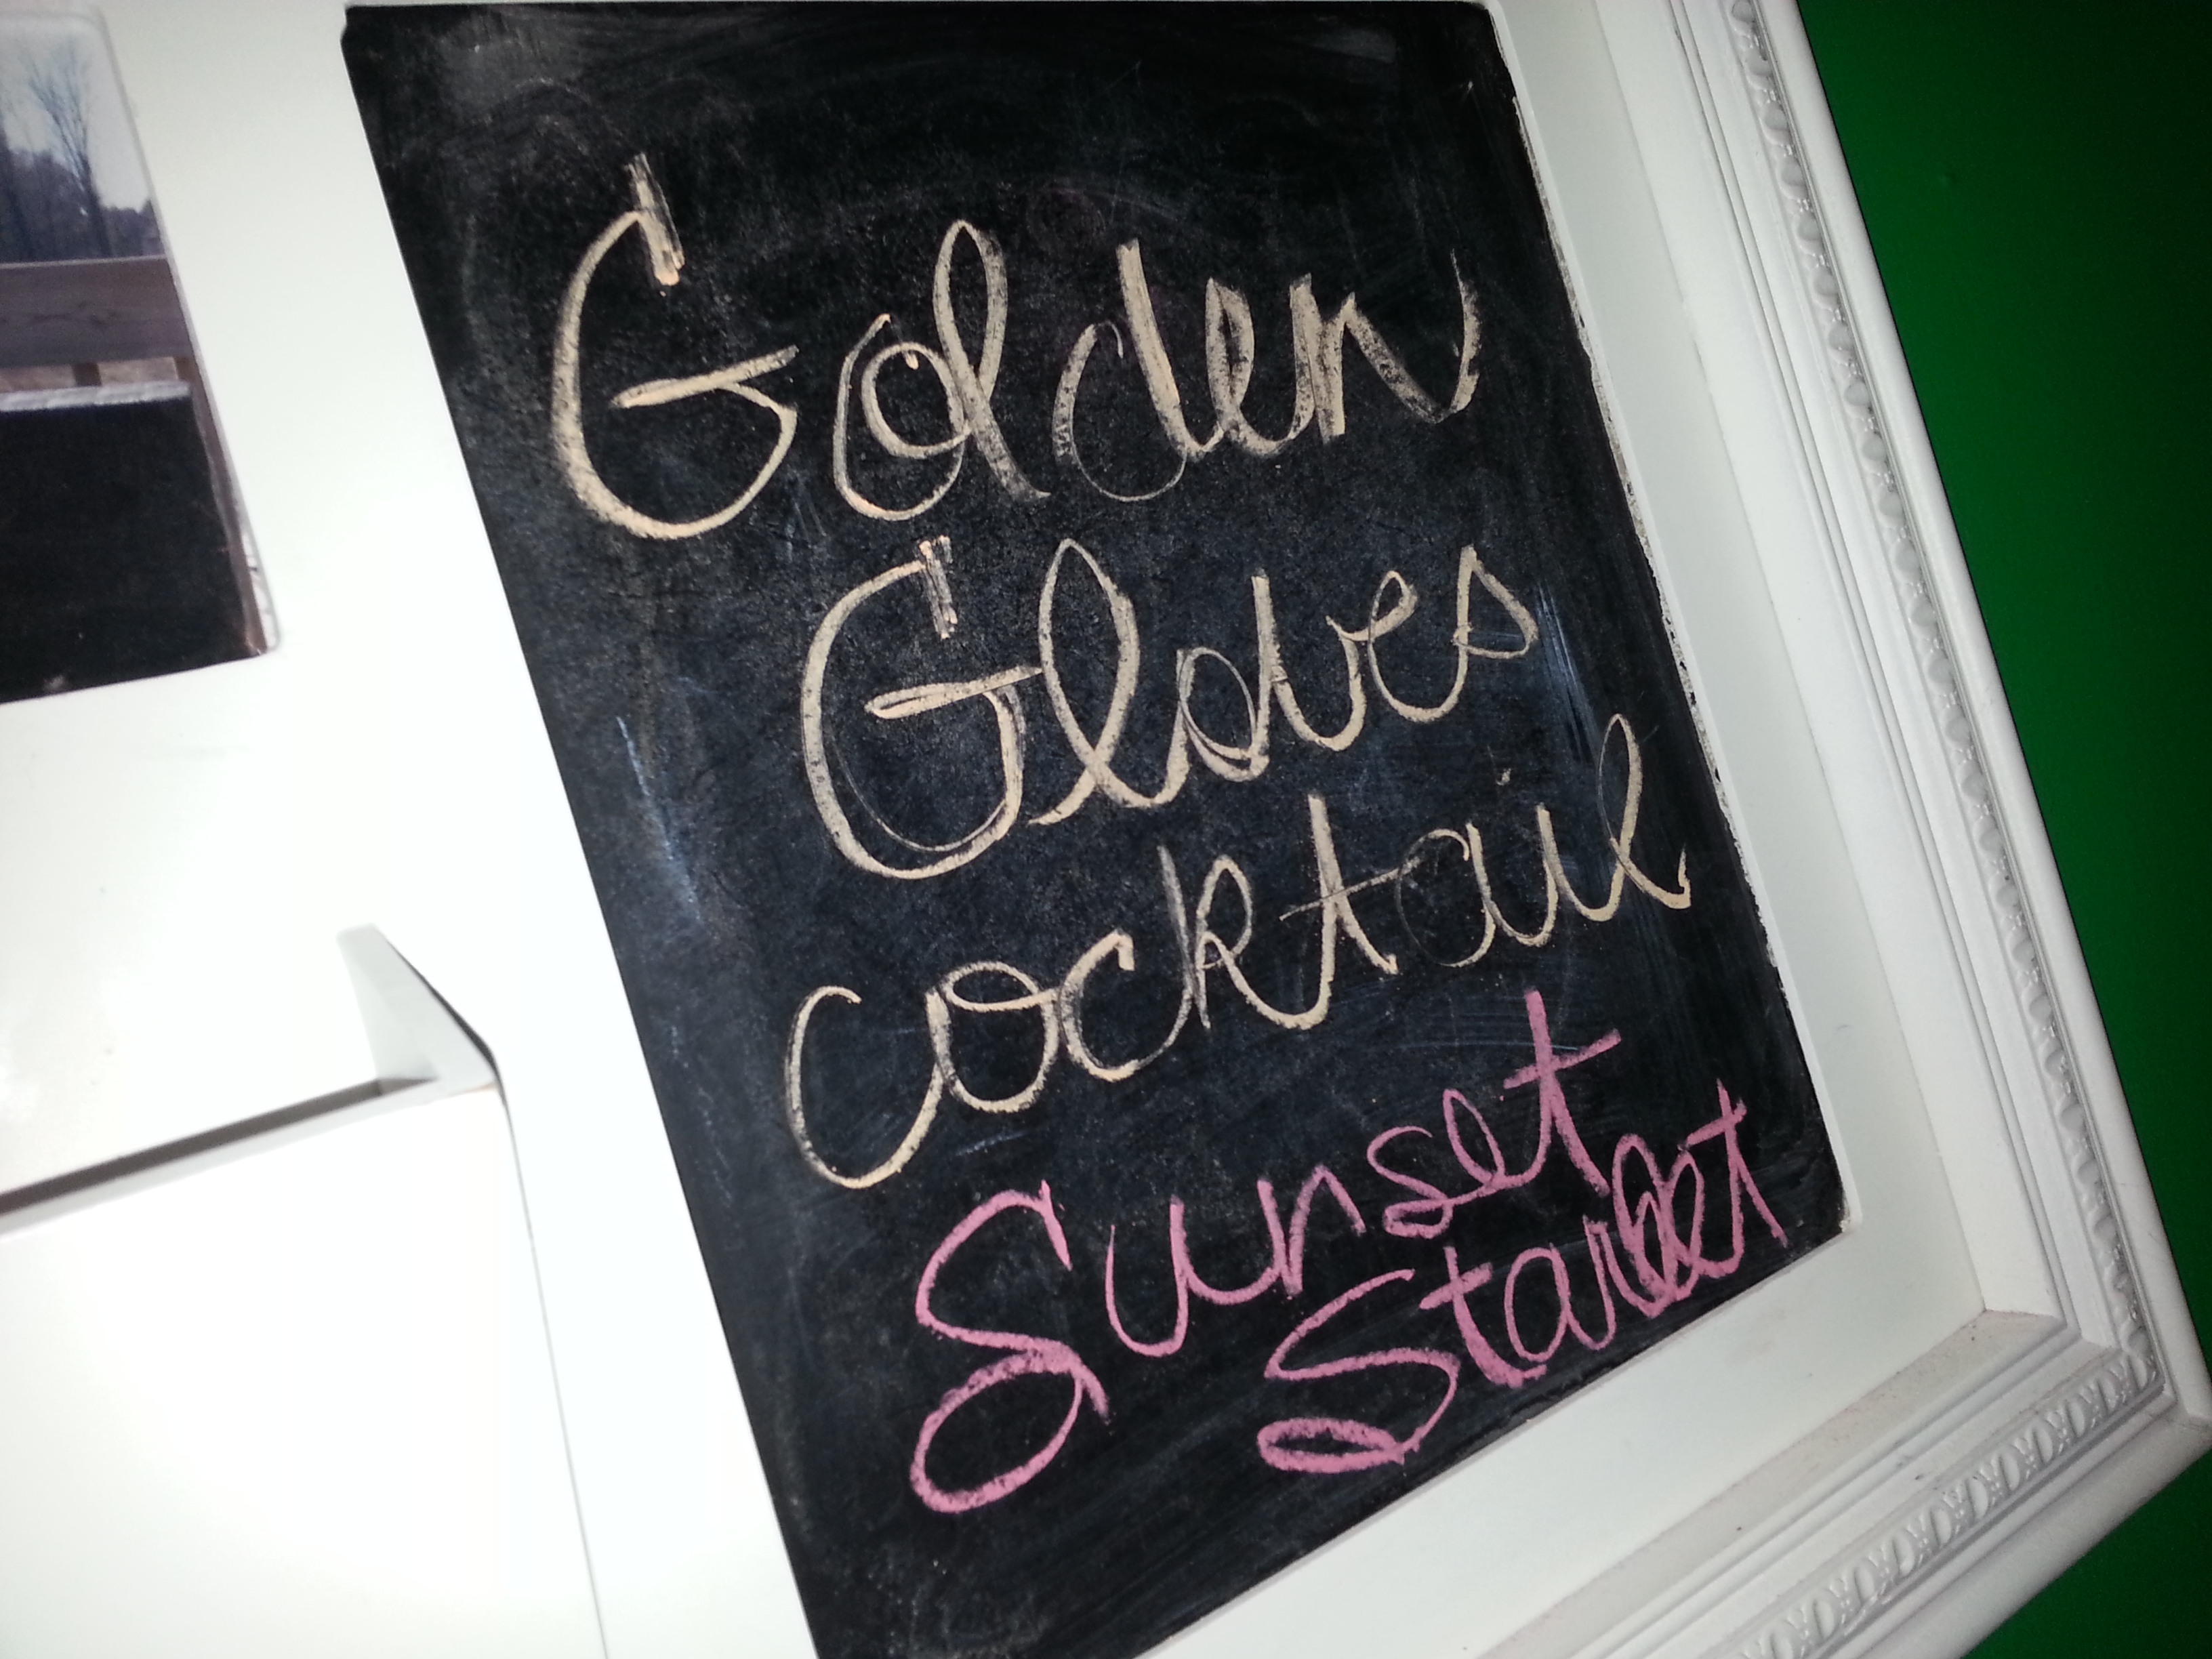 Golden
Gloves
cocktail
Sunset
Starlet